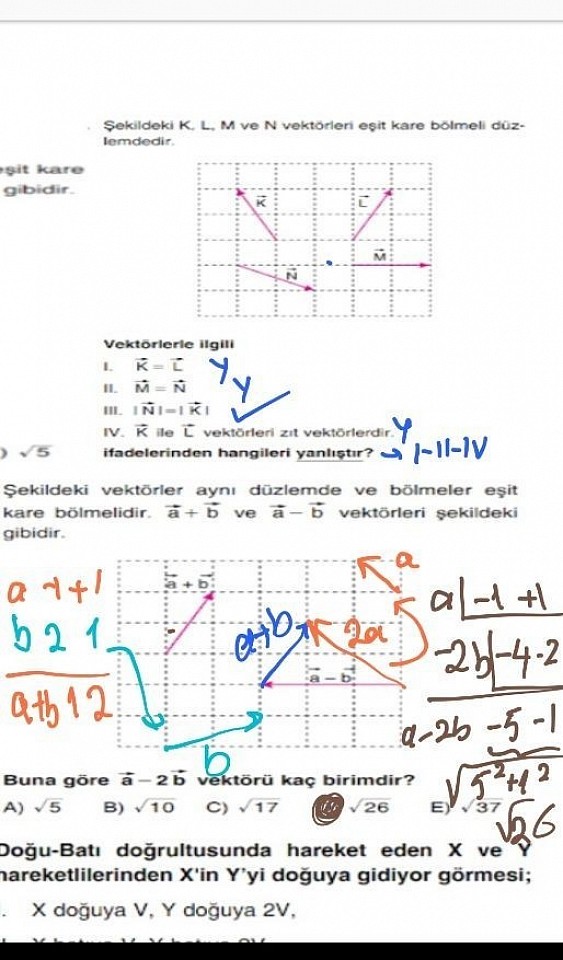 Şekildeki K, L, M ve N vektörleri eşit kare bölmeli düz-
lemdedir.
eşit kare
gibidir.
K
L
M
N
Vektörlerle ilgili
I. K = L y
II. M = N y
III. |N|=|K|
IV. K ile L vektörleri zıt vektörlerdir. y
) √5
ifadelerinden hangileri yanlıştır? → I-II-IV
Şekildeki vektörler aynı düzlemde ve bölmeler eşit
kare bölmelidir. a + b ve a - b vektörleri şekildeki
gibidir.
a + b
a
a -1 +1
b 2 1
a+b 1 2
a+b
2a
a - b
b
a -1 +1
-2b -4 -2
a-2b -5 -1
√5²+1²
√26
Buna göre a - 2b vektörü kaç birimdir?
A) √5 B) √10 C) √17 √26 E) √37
Doğu-Batı doğrultusunda hareket eden X ve Y
hareketlilerinden X'in Y'yi doğuya gidiyor görmesi;
. X doğuya V, Y doğuya 2V,
X batıya V, Y batıya 2V